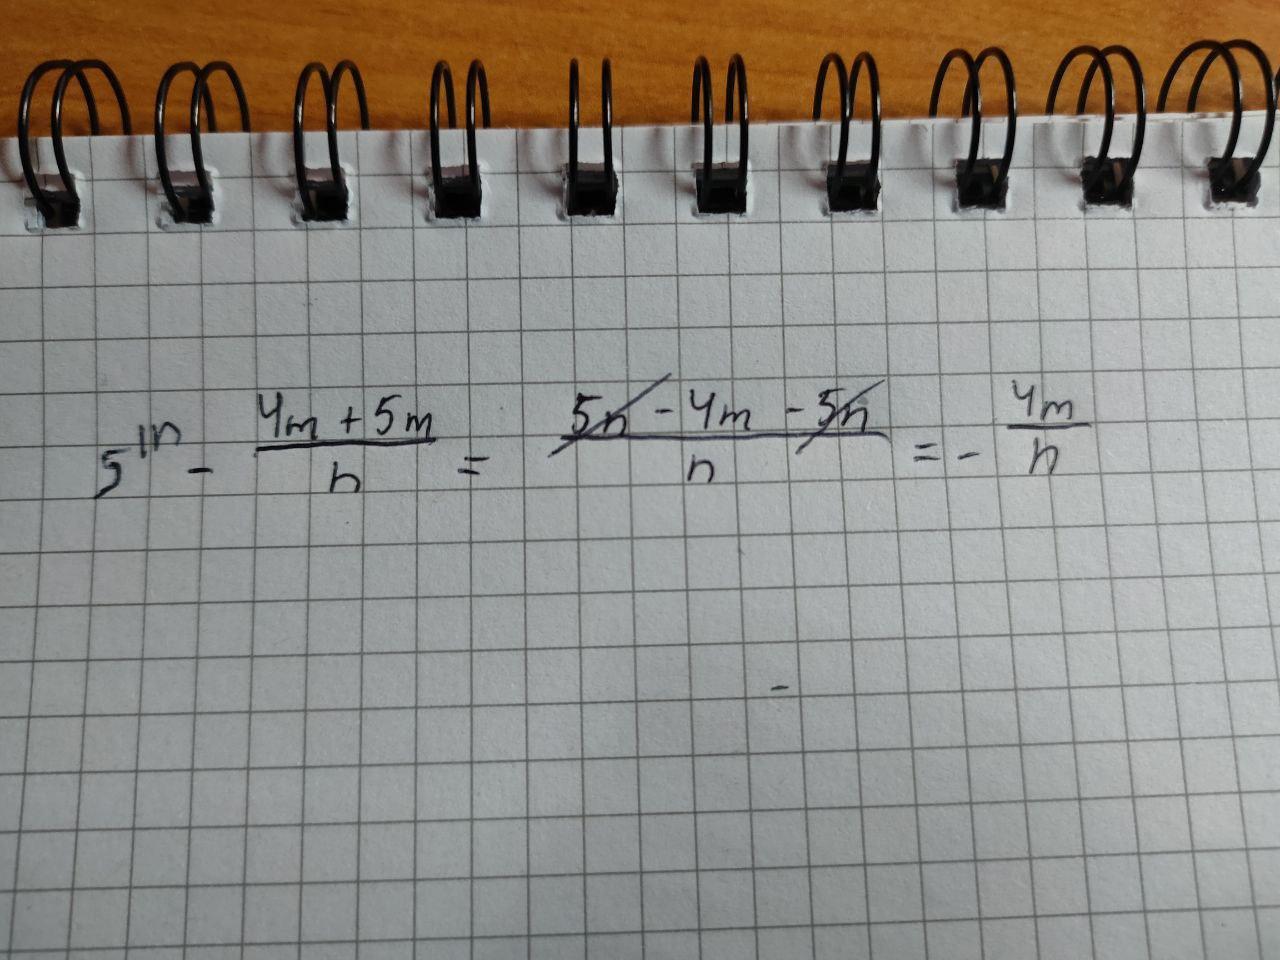 5^{|n} - \frac{4m + 5m}{n} = \frac{5n - 4m - 5n}{n} = - \frac{4m}{n}